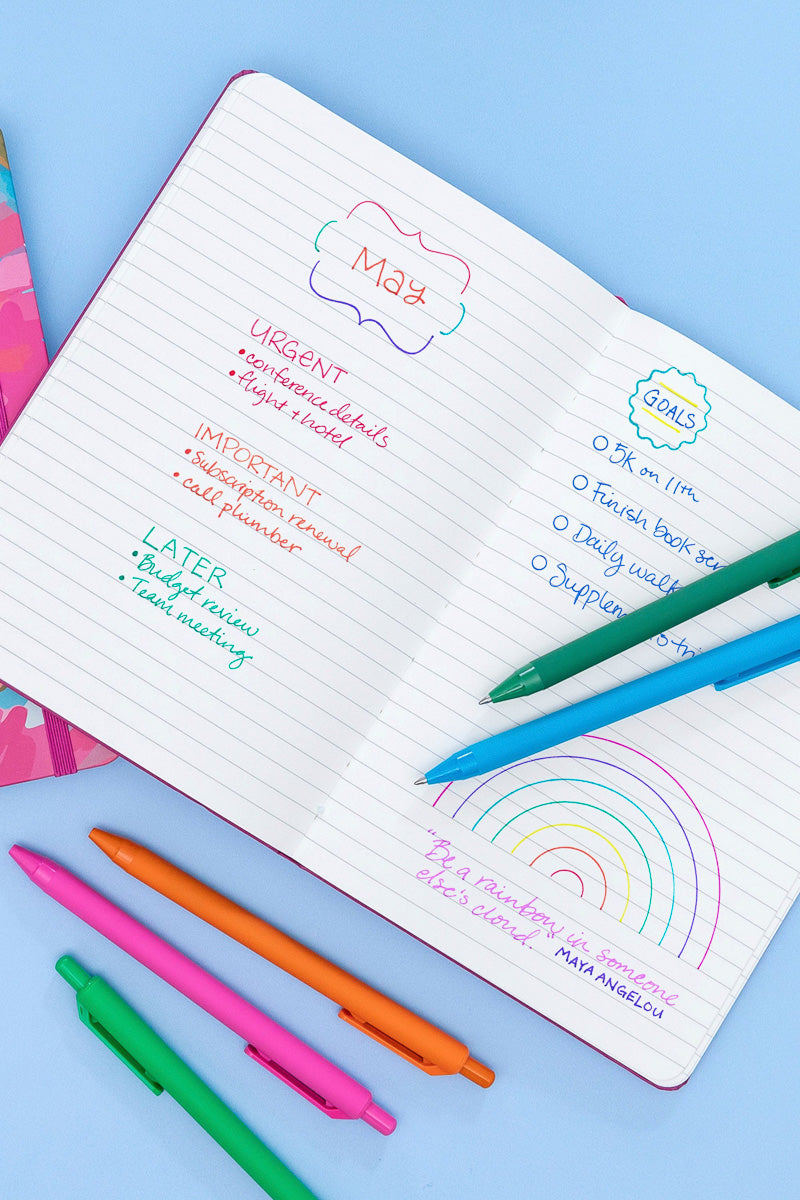 May
URGENT
• conference details
• flight + hotel
IMPORTANT
• subscription renewal
• call plumber
LATER
• Budget review
• Team meeting
GOALS
○ 5K on 11th
○ Finish book
○ Daily walk
○
"Be a rainbow in someone
else's cloud."
MAYA ANGELOU